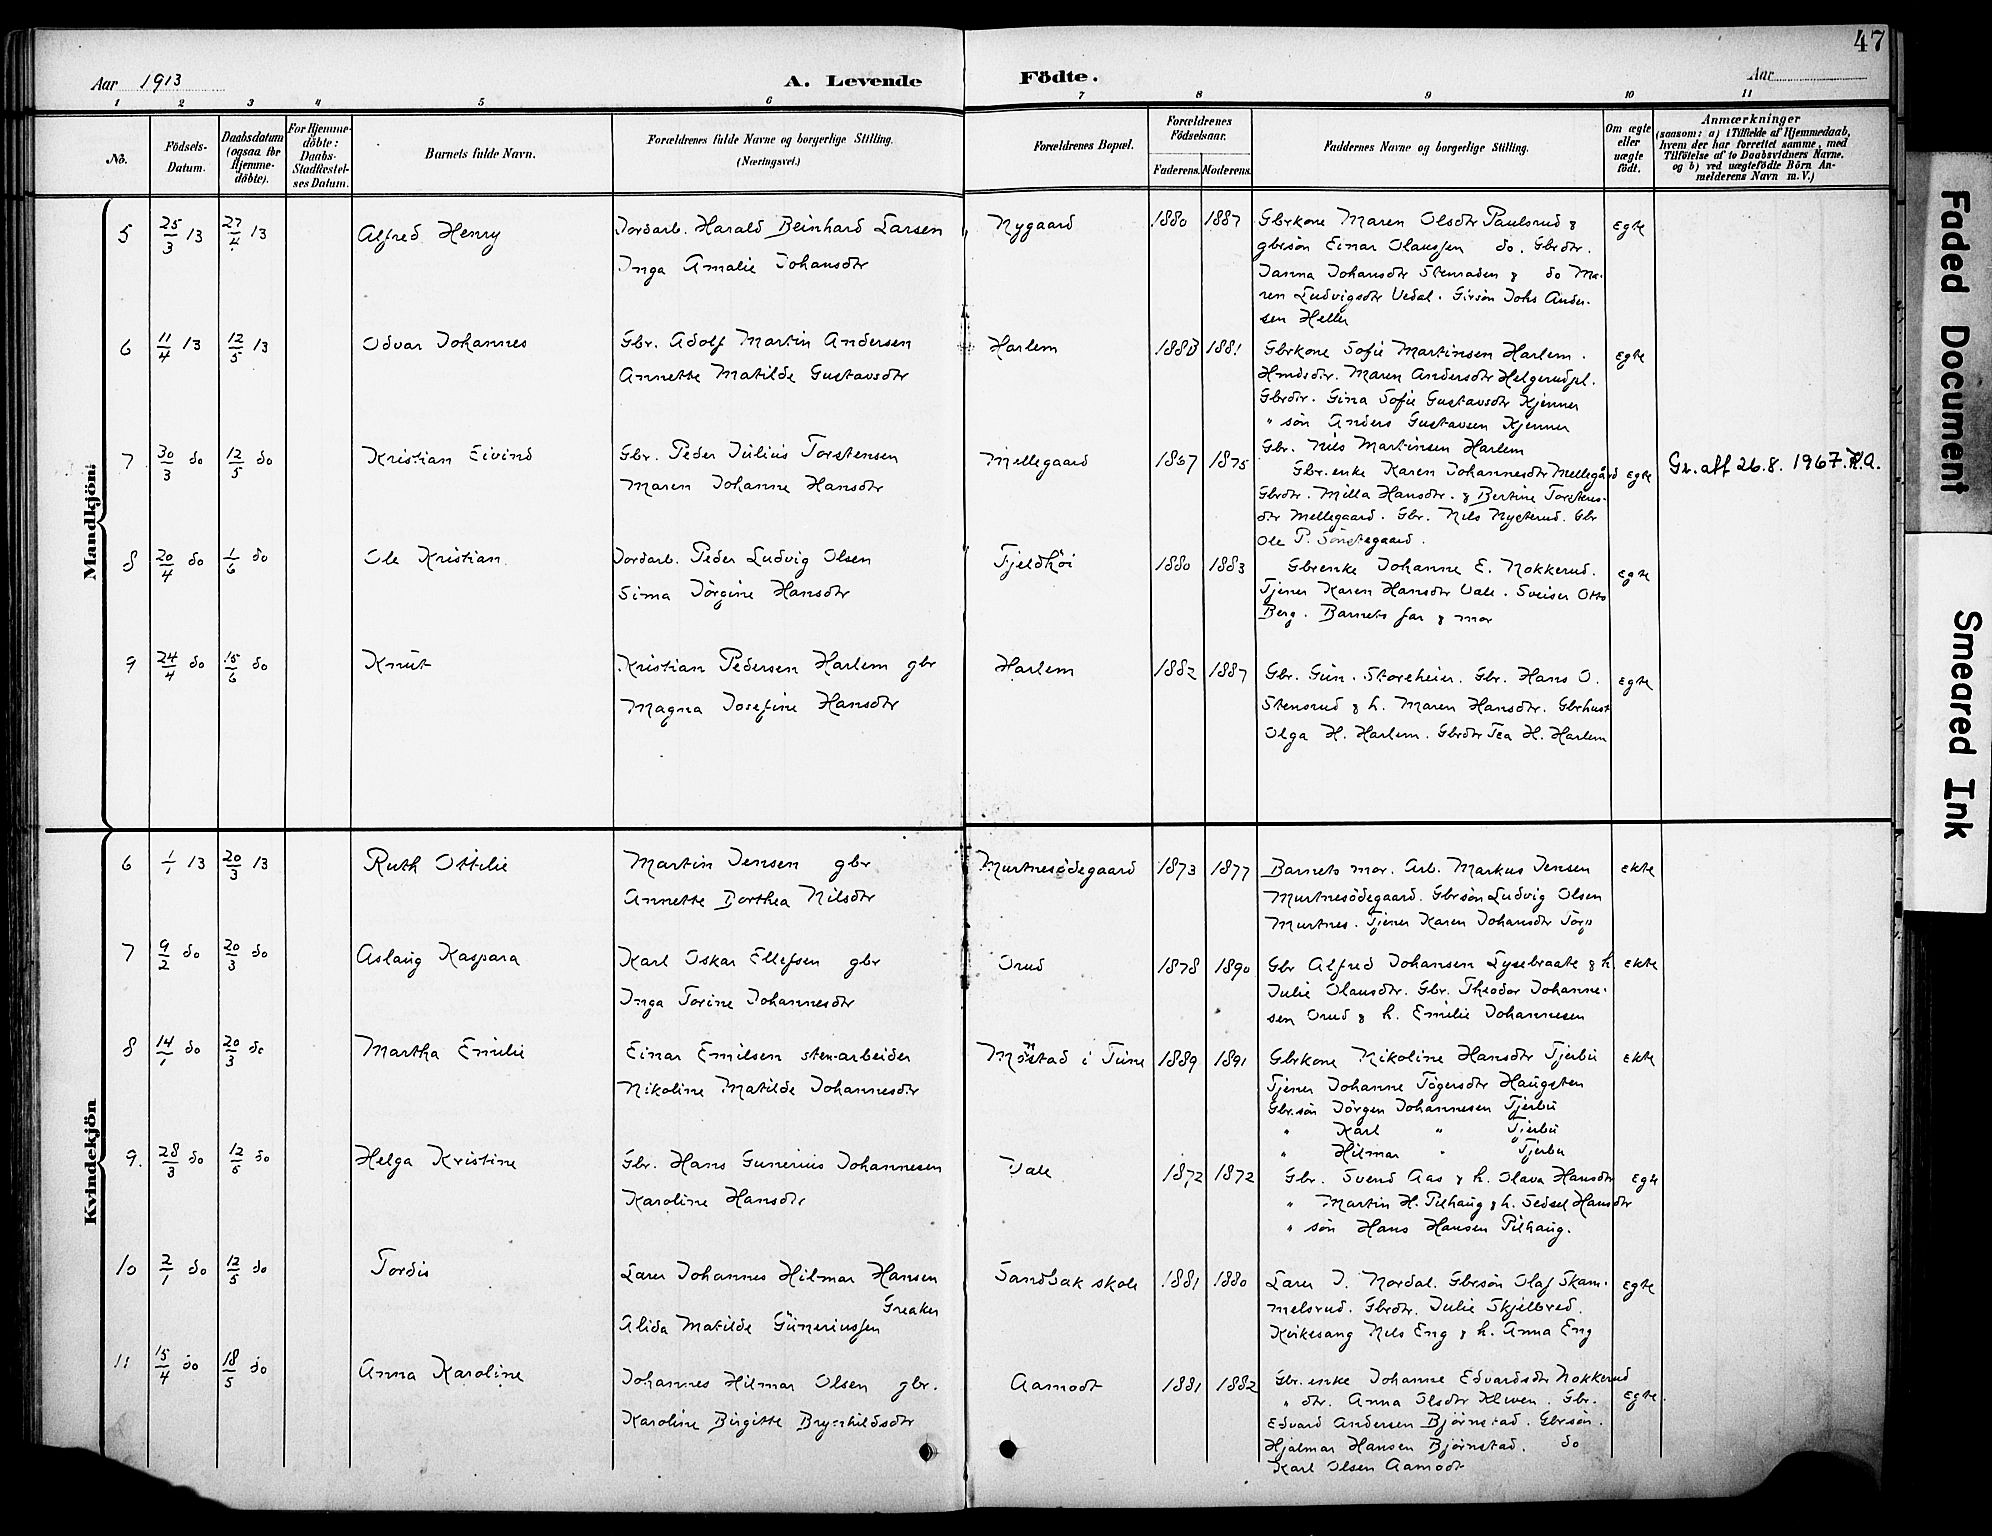 47
Aar 1913
A. Levende Födte.
Aar
1 2 3 4 5 6 7 8 9 10 11
No.
Födsels-Datum.
Daabsdatum (ogsaa for Hjemme-döbte).
For Hjemme-döbte: Daabs-Stadfæstel-ses Datum.
Barnets fulde Navn.
Forældrenes fulde Navne og borgerlige Stilling. (Næringsvei.)
Forældrenes Bopæl.
Forældrenes Födselsaar.
Faderens. Moderens.
Faddernes Navne og borgerlige Stilling.
Om ægte eller uægte födt.
Anmærkninger
(saasom: a) i Tilfælde af Hjemmedaab,
hvem der har forrettet samme, med
Tilföielse af to Daabsvidners Navne.
og b) ved uægtefödte Börn An-
melderens Navn m. V.)
Mandkjön:
5 25/3 13 27/4 13 Alfred Henry Jordarb. Harald Beinhard Larsen Nygaard 1880 1887 Gbrkone Maren Olsdtr Paulsrud & Egte
gbrsön Einar Olaussen do. Gbrdtr.
Inga Amalie Johansdtr
Janna Johansdtr Stenraden & do Ma-
ren Ludvigsdtr Vedal. Girsön Johs Ander-
sen Heller
6 11/4 13 12/5 13 Odvar Johannes Gbr. Adolf Martin Andersen Harlem 1883 1881 Gbrkone Sofie Martinsen Harlem. Egte
Annette Matilde Gustavsdtr Hmdsdtr. Maren Andersdtr Helgerudpl.
Gbrdtr. Gina Sofie Gustavsdtr Kjenner
" sön Anders Gustavsen Kjenner
Gbr. Nils Martinsen Harlem
7 30/3 do 12/5 do Kristian Eivind Gbr. Peder Julius Torstensen Mellegaard 1867 1875 Gbr.enke Karen Johannesdtr Mellegård Egte Gr. att 26.8. 1967. K.A.
Maren Johanne Hansdtr Gbrdtr. Milla Hansdtr. & Bertine Torstens-
dtr Mellegaard. Gbr. Nils Nysterud. Gbr
Ole P. Sönstegaard.
8 20/4 do 1/6 do Ole Kristian Jordarb. Peder Ludvig Olsen Fjeldhöi 1880 1883 Gbrenke Johanne E. Nokkerud. Egte
Sima Jörgine Hansdtr Tjener Karen Hansdtr Vale. Sveiser Otto
Berg. Barnets far & mor
9 24/4 do 15/6 do Knut Kristian Pedersen Harlem gbr Harlem 1882 1887 Gbr. Gun. Storeheier. Gbr. Hans O. Egte
Magna Josefine Hansdtr Stensrud & h. Maren Hansdtr. Gbrhust
Olga H. Harlem. Gbrdtr Tea H. Harlem
Kvindekjön
6 1/1 13 20/3 13 Ruth Ottilie Martin Jensen gbr Murtnesödegaard 1873 1877 Barnets mor. Arb. Markus Jensen ekte
Annette Dorthea Nilsdtr Murtnesödegaard. Gbrsön Ludvig Olsen
Murtnes. Tjener Karen Johansdtr Torp
7 9/2 do 20/3 do Aslaug Kaspara Karl Oskar Ellefsen gbr Orud 1878 1890 Gbr Alfred Johansen Lysebraate & h. ekte
Inga Torine Johannesdtr Julie Olausdtr. Gbr. Theodor Johanne-
sen Orud & h. Emilie Johannesen
8 14/1 do 20/3 do Martha Emilie Einar Emilsen sten-arbeider Möstad i Tune 1889 1891 Gbrkone Nikoline Hansdtr Tjerbu ekte
Nikoline Matilde Johannesdtr Tjener Johanne Tögersdtr Haugsten
Gbr.sön Jörgen Johannesen Tjerbu
" Karl " Tjerbu
" Hilmar " Tjerbu
9. 28/3 do 12/5 do Helga Kristine Gbr. Hans Gunerius Johannesen Vale 1872 1872 Gbr. Svend Aas & h. Olava Hansdtr Egte
Karoline Hansdtr " Martin H. Pilhaug & h. Sedsel Hansdtr
" sön Hans Hansen Pilhaug.
10 2/1 do 12/5 do Tordis Lærer Johannes Hilmar Hansen Sandbak skole 1881 1880 Lærer J. Nordal. Gbrsön Olaf Skam- Egte
Greaker melsrud. Gbrdtr. Julie Skjelbred.
Alida Matilde Guneriussen Kirkesang Nils Eng & h. Anna Eng
11 15/4 do 18/5 do Anna Karoline Johannes Hilmar Olsen gbr. Aamodt 1881 1882 Gbr.enke Johanne Edvardsdtr Nokkerud
Karoline Birgitte Brynhildsdtr " dtr. Anna Olsdtr Kleven. Gbr. Egte.
Edvard Andersen Björnstad. Gbrsön.
Hjalmar Hansen Björnstad. do
Karl Olsen Aamodt
Faded Document
Smeared Ink